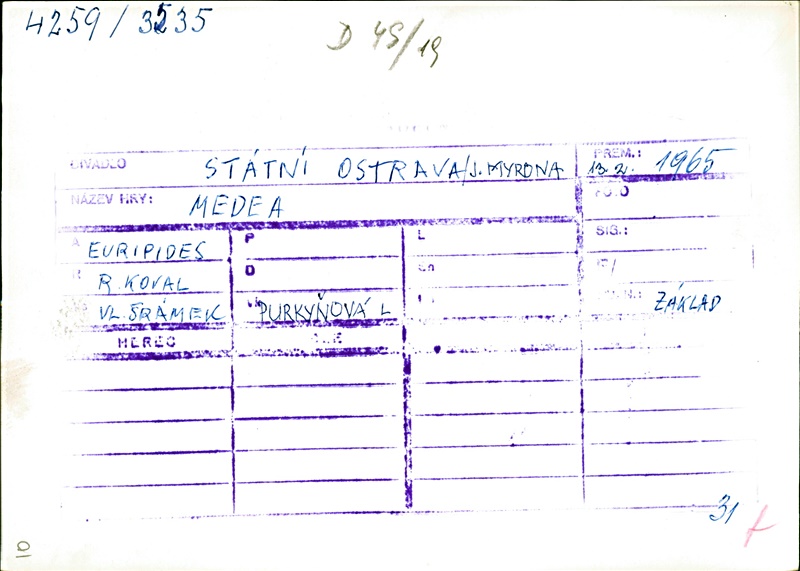 4259 / 3535
D 49/19
DIVADLO STÁTNÍ OSTRAVA/J. MYRONA PREM.: 13. 2. 1965
NÁZEV HRY: MEDEA
A EURIPIDES P L SIG.:
R. KOVAL D
VL. ŠRÁMEK PURKYŇOVÁ L ZÁKLAD
HEREC
31